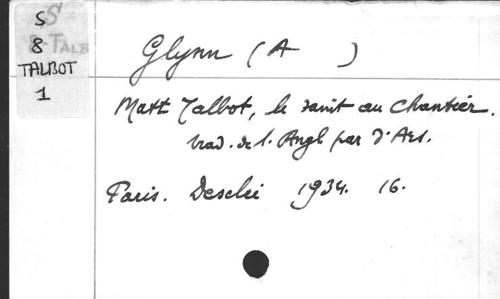 S
8
TALBOT
1
Glynn (A )
Matt Talbot, le saint au chantier.
trad. de l'Angl par d'Ars.
Paris. Desclée 1934. 16.